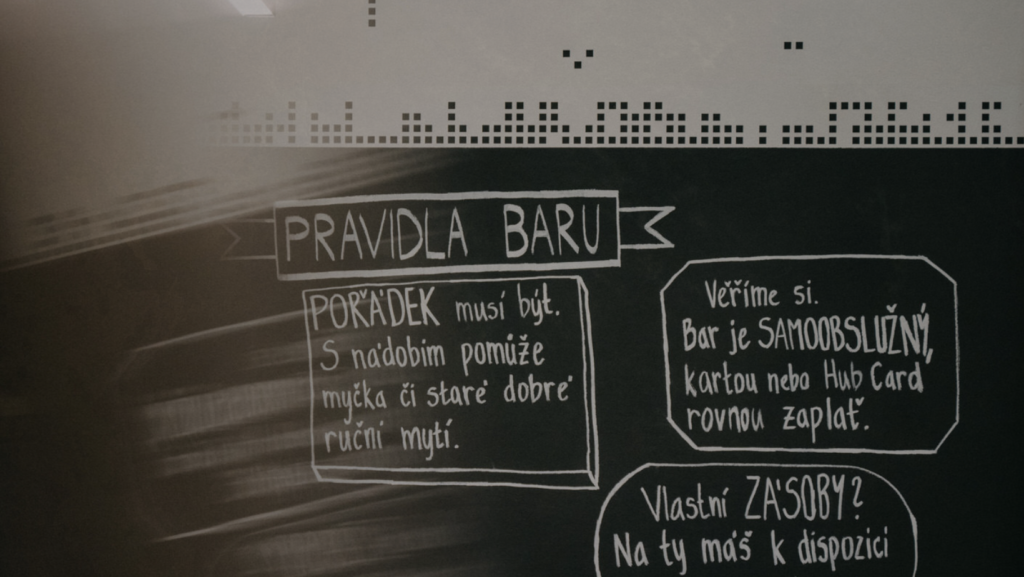 PRAVIDLA BARU
POŘÁDEK musí být.
S nádobím pomůže
myčka či staré dobré
ruční mytí.
Věříme si.
Bar je SAMOOBSLUŽNÝ,
kartou nebo Hub Card
rovnou zaplať.
Vlastní ZÁSOBY?
Na ty máš k dispozici